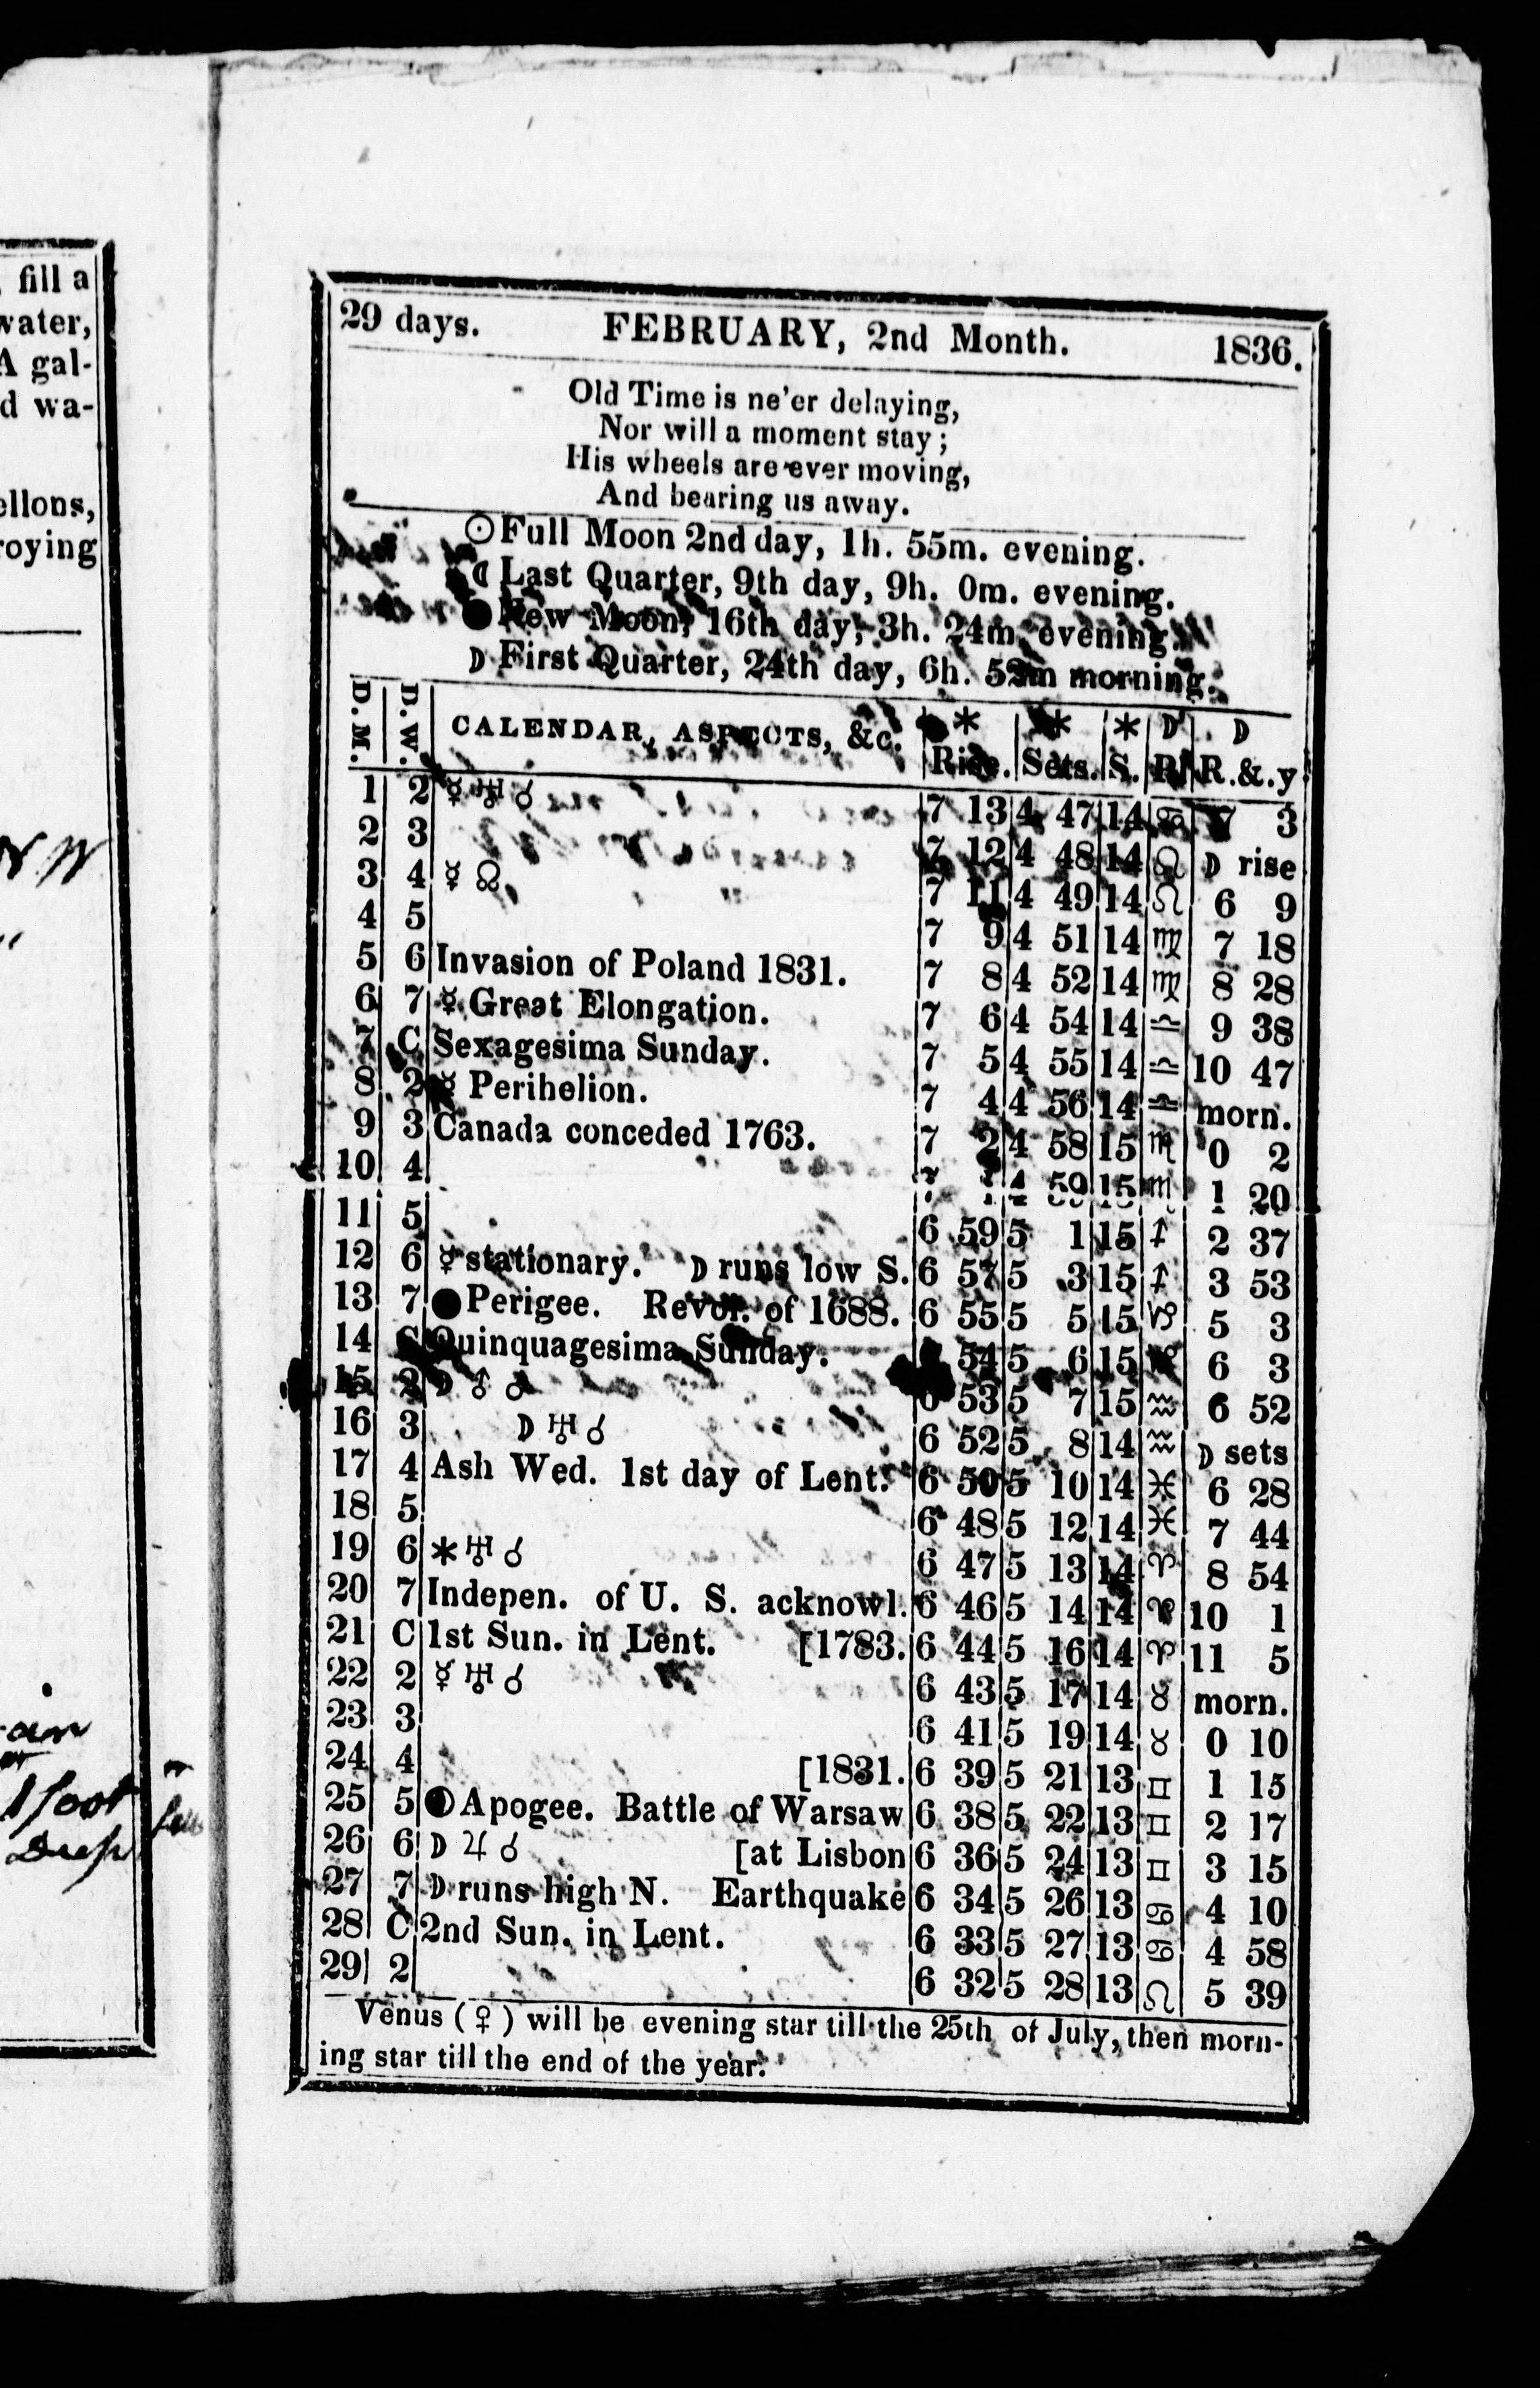 fill a
water,
A gal-
d wa-
ellons,
roying
1 foot
Deep
29 days. FEBRUARY, 2nd Month. 1836.
Old Time is ne'er delaying,
Nor will a moment stay;
His wheels are ever moving,
And bearing us away.
☉ Full Moon 2nd day, 1h. 55m. evening.
☾ Last Quarter, 9th day, 9h. 0m. evening.
● New Moon, 16th day, 3h. 24m. evening.
☽ First Quarter, 24th day, 6h. 52m morning.
D. M. D. W. CALENDAR, ASPECTS, &c. * Rise. * Sets. * S. ☽ Pl ☽ R. &. y
1 2 ☿ ♅ ☌ 7 13 4 47 14 ♋ 7 3
2 3 7 12 4 48 14 ♌ ☽ rise
3 4 ☿ ☊ 7 11 4 49 14 ♌ 6 9
4 5 7 9 4 51 14 ♍ 7 18
5 6 Invasion of Poland 1831. 7 8 4 52 14 ♍ 8 28
6 7 ☿ Great Elongation. 7 6 4 54 14 ♎ 9 38
7 C Sexagesima Sunday. 7 5 4 55 14 ♎ 10 47
8 2 ☿ Perihelion. 7 4 4 56 14 ♎ morn.
9 3 Canada conceded 1763. 7 2 4 58 15 ♏ 0 2
10 4 7 1 4 59 15 ♏ 1 20
11 5 6 59 5 1 15 ♐ 2 37
12 6 ☿ stationary. ☽ runs low S. 6 57 5 3 15 ♐ 3 53
13 7 ● Perigee. Revol. of 1688. 6 55 5 5 15 ♑ 5 3
14 C Quinquagesima Sunday. 6 54 5 6 15 ♑ 6 3
15 2 ☽ ♂ ☌ 6 53 5 7 15 ♒ 6 52
16 3 ☽ ♅ ☌ 6 52 5 8 14 ♒ ☽ sets
17 4 Ash Wed. 1st day of Lent. 6 50 5 10 14 ♓ 6 28
18 5 6 48 5 12 14 ♓ 7 44
19 6 * ♅ ☌ 6 47 5 13 14 ♈ 8 54
20 7 Indepen. of U. S. acknowl. 6 46 5 14 14 ♈ 10 1
21 C 1st Sun. in Lent. [1783. 6 44 5 16 14 ♈ 11 5
22 2 ☿ ♅ ☌ 6 43 5 17 14 ♉ morn.
23 3 6 41 5 19 14 ♉ 0 10
24 4 [1831. 6 39 5 21 13 ♊ 1 15
25 5 Apogee. Battle of Warsaw 6 38 5 22 13 ♊ 2 17
26 6 ☽ ♃ ☌ [at Lisbon 6 36 5 24 13 ♊ 3 15
27 7 ☽ runs high N. Earthquake 6 34 5 26 13 ♋ 4 10
28 C 2nd Sun. in Lent. 6 33 5 27 13 ♋ 4 58
29 2 6 32 5 28 13 ♌ 5 39
Venus (♀) will be evening star till the 25th of July, then morn-
ing star till the end of the year.